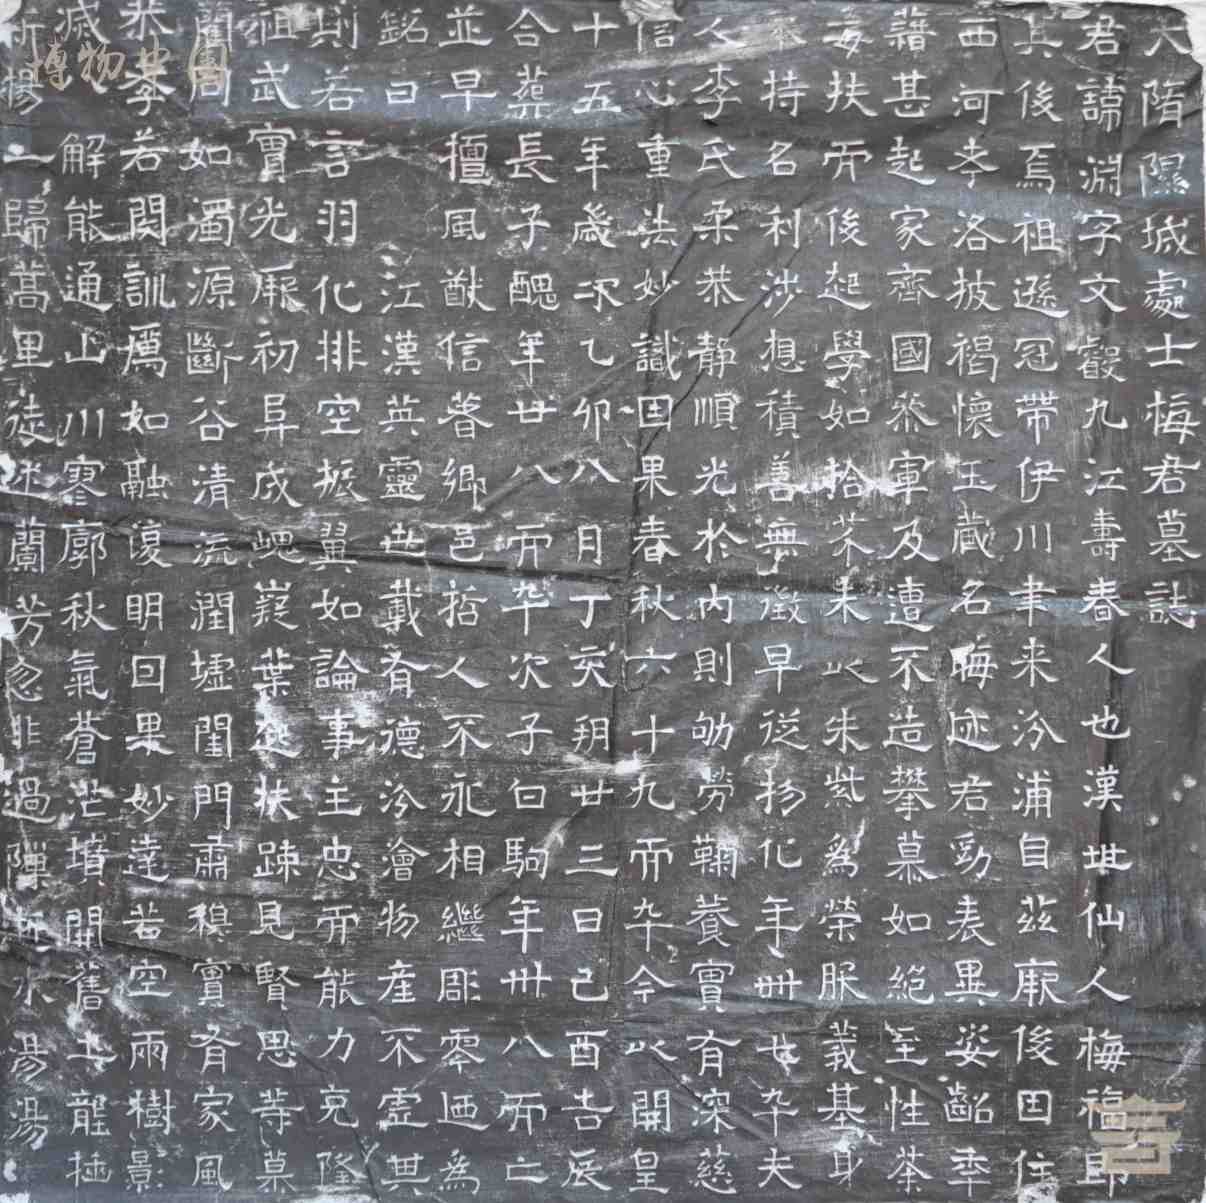 大隋隰城處士梅君墓誌
君諱淵字文叡九江壽春人也漢世仙人梅福即
其後焉祖遜冠帶伊川聿来汾浦自茲厥後因住
西河考洛披褐懷玉蔵名晦迹君勁表異姿齠年
藉甚起家齊國叅軍及遭不造攀慕如絕至性荼
毒扶而後起學如拾芥未以朱紫為榮服義基身
不持名利涉想積善無徵早従物化年卌七卒夫
人李氏柔恭靜順光於內則劬勞鞠養實有深慈
信心重法妙識因果春秋六十九而卒今以開皇
十五年歳次乙卯八月丁亥朔廿三日己酉吉辰
合葬長子醜年廿八而卒次子白駒年卌八而亡
並早擅風猷信著鄉邑哲人不永相繼彫零迺為
銘曰
江漢英靈世載有德汾澮物産不䨩其
則若言羽化排空振翼如論事主忠而能力克隆
祖武寔光厥初昇成嵬嶷葉企扶踈見賢思等慕
藺同如濁源斷谷清流潤墟閨門肅穆實有家風
恭孝若閔訓厲如融復明因果妙達若空兩樹影
滅 解能通山川寥廓秋氣蒼茫墳開舊土龍插
新楊一歸蒿里徒述蘭芳忽非過隙 水湯湯
博物中国